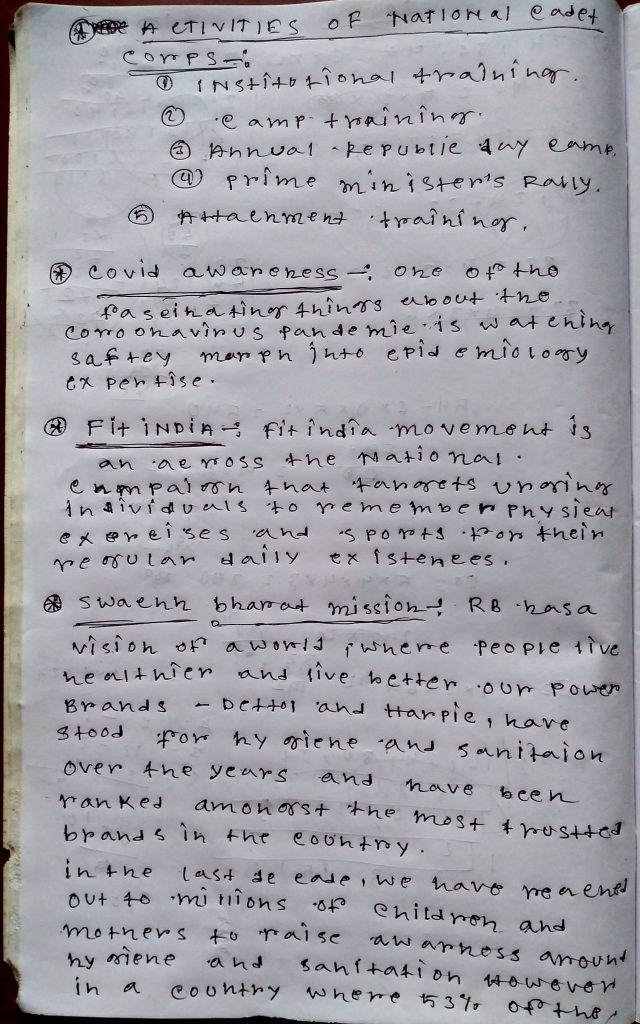 * ACTIVITIES OF National Cadet
Corps -:
① INStitutional training.
② camp training.
③ Annual Republic day camp.
④ prime minister's Rally.
⑤ Attachment training.
* Covid awareness -: one of the
fascinating things about the
corroonavirus pandemic is watching
saftey morph into epidemiology
expertise.
* Fit INDIA -: fit india movement is
an across the National
campaign that targets urging
individuals to remember physical
exercises and sports for their
regular daily existences.
* Swachh bharat mission -: RB hasa
vision of a world, where people live
healthier and live better our Power
Brands - Dettol and Harpic, have
stood for hygiene and sanitaion
over the years and have been
ranked amongst the most trustted
brands in the country.
in the last decade, we have reached
out to millions of children and
mothers to raise awarness arround
hygiene and sanitation However
in a country where 53% of the